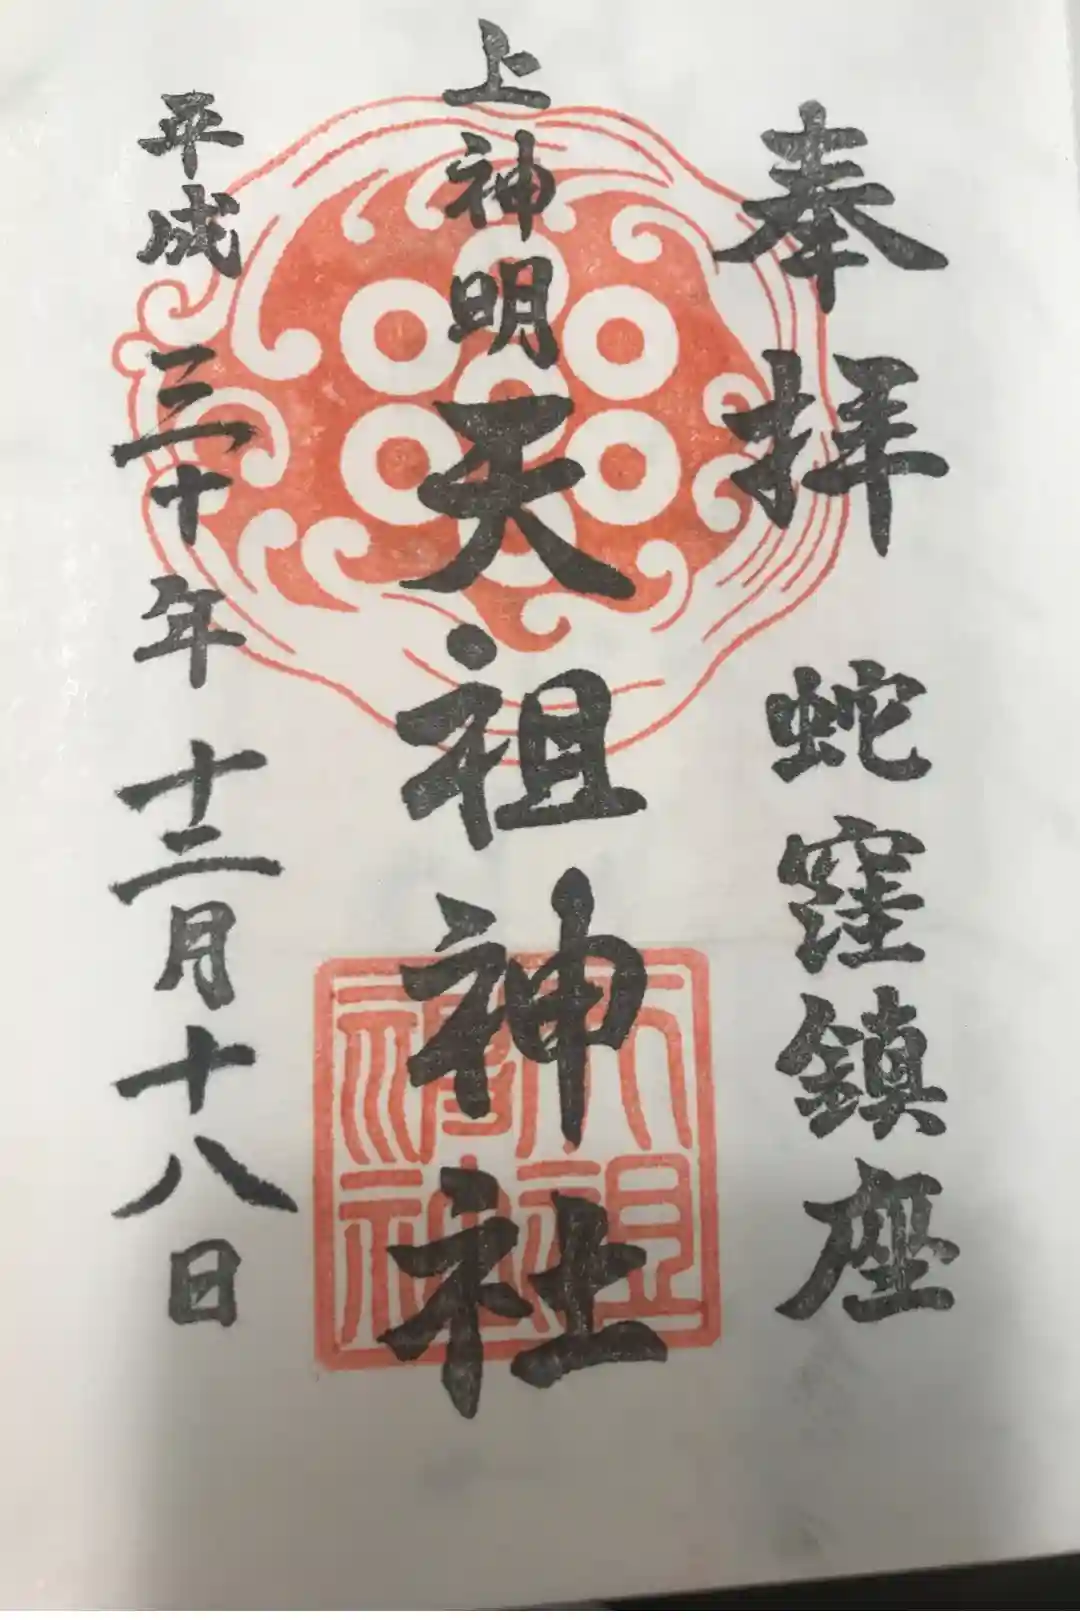 奉拝 蛇窪鎮座
上神明天祖神社
平成三十年十二月十八日